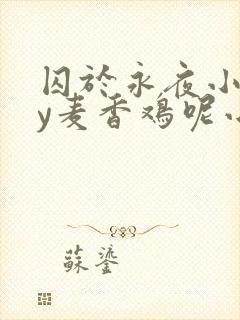 囚於永夜小
y麦香鸡呢小
蘇鎏